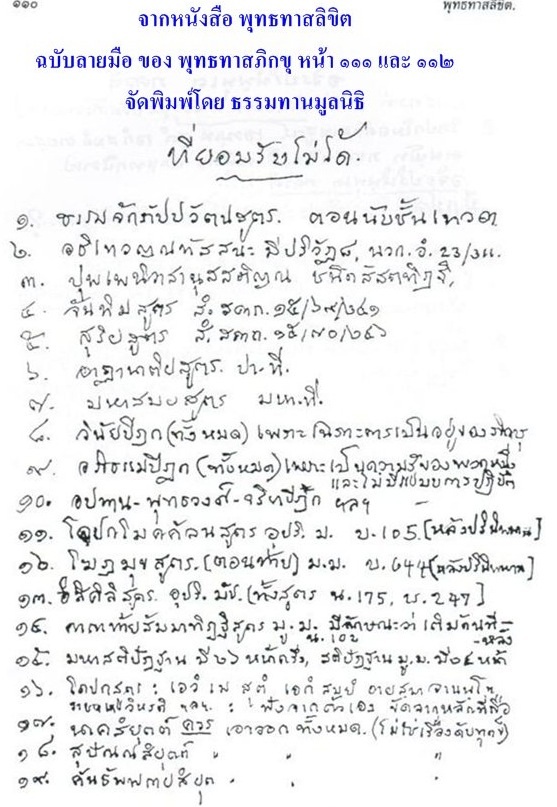 ๑๑๐
พุทธทาสลิขิต.
จากหนังสือ พุทธทาสลิขิต
ฉบับลายมือ ของ พุทธทาสภิกขุ หน้า ๑๑๑ และ ๑๑๒
จัดพิมพ์โดย ธรรมทานมูลนิธิ
ที่ยอมรับไม่ได้.
๑. ธรรมจักกัปปวัตนสูตร. ตอนนับชั้นเทวดา
๒. อธิเทวญาณทัสสนะ มีปริวัฏ๘, นวก. อํ. 23/311.
๓. ปุพเพนิวาสานุสสติญาณ ชนิดสัสสตทิฏฐิ,
๔. จันทิมสูตร สํ. สคาถ. ๑๕/๖๙/๒๔๑
๕. สุริยสูตร สํ. สคาถ. ๑๕/๗๐/๒๔๖
๖. อาฏานาติยสูตร. ปา. ที.
๗. มหาสมยสูตร มหา. ที.
๘. วินัยปิฎก (ทั้งหมด) เพราะเฉพาะการเป็นอยู่ของภิกษุ
๙. อภิธัมมปิฎก (ทั้งหมด) เพราะเป็นความรู้ของพวกหนึ่ง
และไม่มีแบบการปฏิบัติ
๑๐. อปทาน-พุทธวงศ์-จริยาปิฎก ฯลฯ
๑๑. โคปกโมคคัลลานสูตร อุปริ. ม. บ. 105. [หลังปรินิพพาน]
๑๒. โฆฏมุขสูตร. (ตอนท้าย) ม.ม. บ. 644 [หลังปรินิพพาน]
๑๓. อิสิคิลิสูตร. อุปริ. มัช. [ทั้งสูตร น. 175, บ. 247]
๑๔. คาถาท้ายสัมมาทิฏฐิสูตร มู. ม. มีลักษณะว่าเติมกันที่
น. 102 -หลัง
๑๕. มหาสติปัฏฐาน มี ๒๖ หน้าครึ่ง, สติปัฏฐาน มู. ม. มี ๑๔ หน้า
๑๖. : เอวํ เม สุตํ เอกํ สมยํ
ฯลฯ. : ฟังจากตัวเอง ขัดจากหลักที่สื่อ
๑๗. นาคสํยุตต์ ควร เอาออกทั้งหมด. (ไม่ใช่เรื่องดับทุกข์)
๑๘. สุปัณณสํยุตต์ " " "
๑๙. คันธัพพกายสํยุต " " "